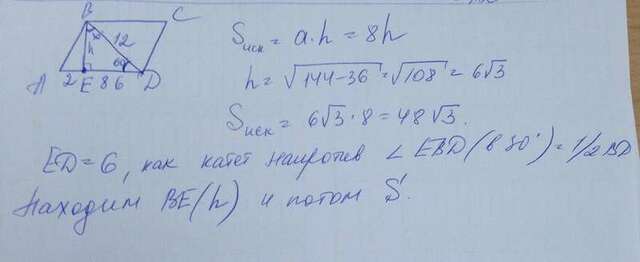 B C
12
h
60°
A 2 E 8 6 D
Sиск = a·h = 8h
h = √144-36 = √108 = 6√3
Sиск = 6√3·8 = 48√3.
ED=6, как катет напротив ∠EBD (в 30°) = 1/2 BD
Находим BE(h) и потом S.